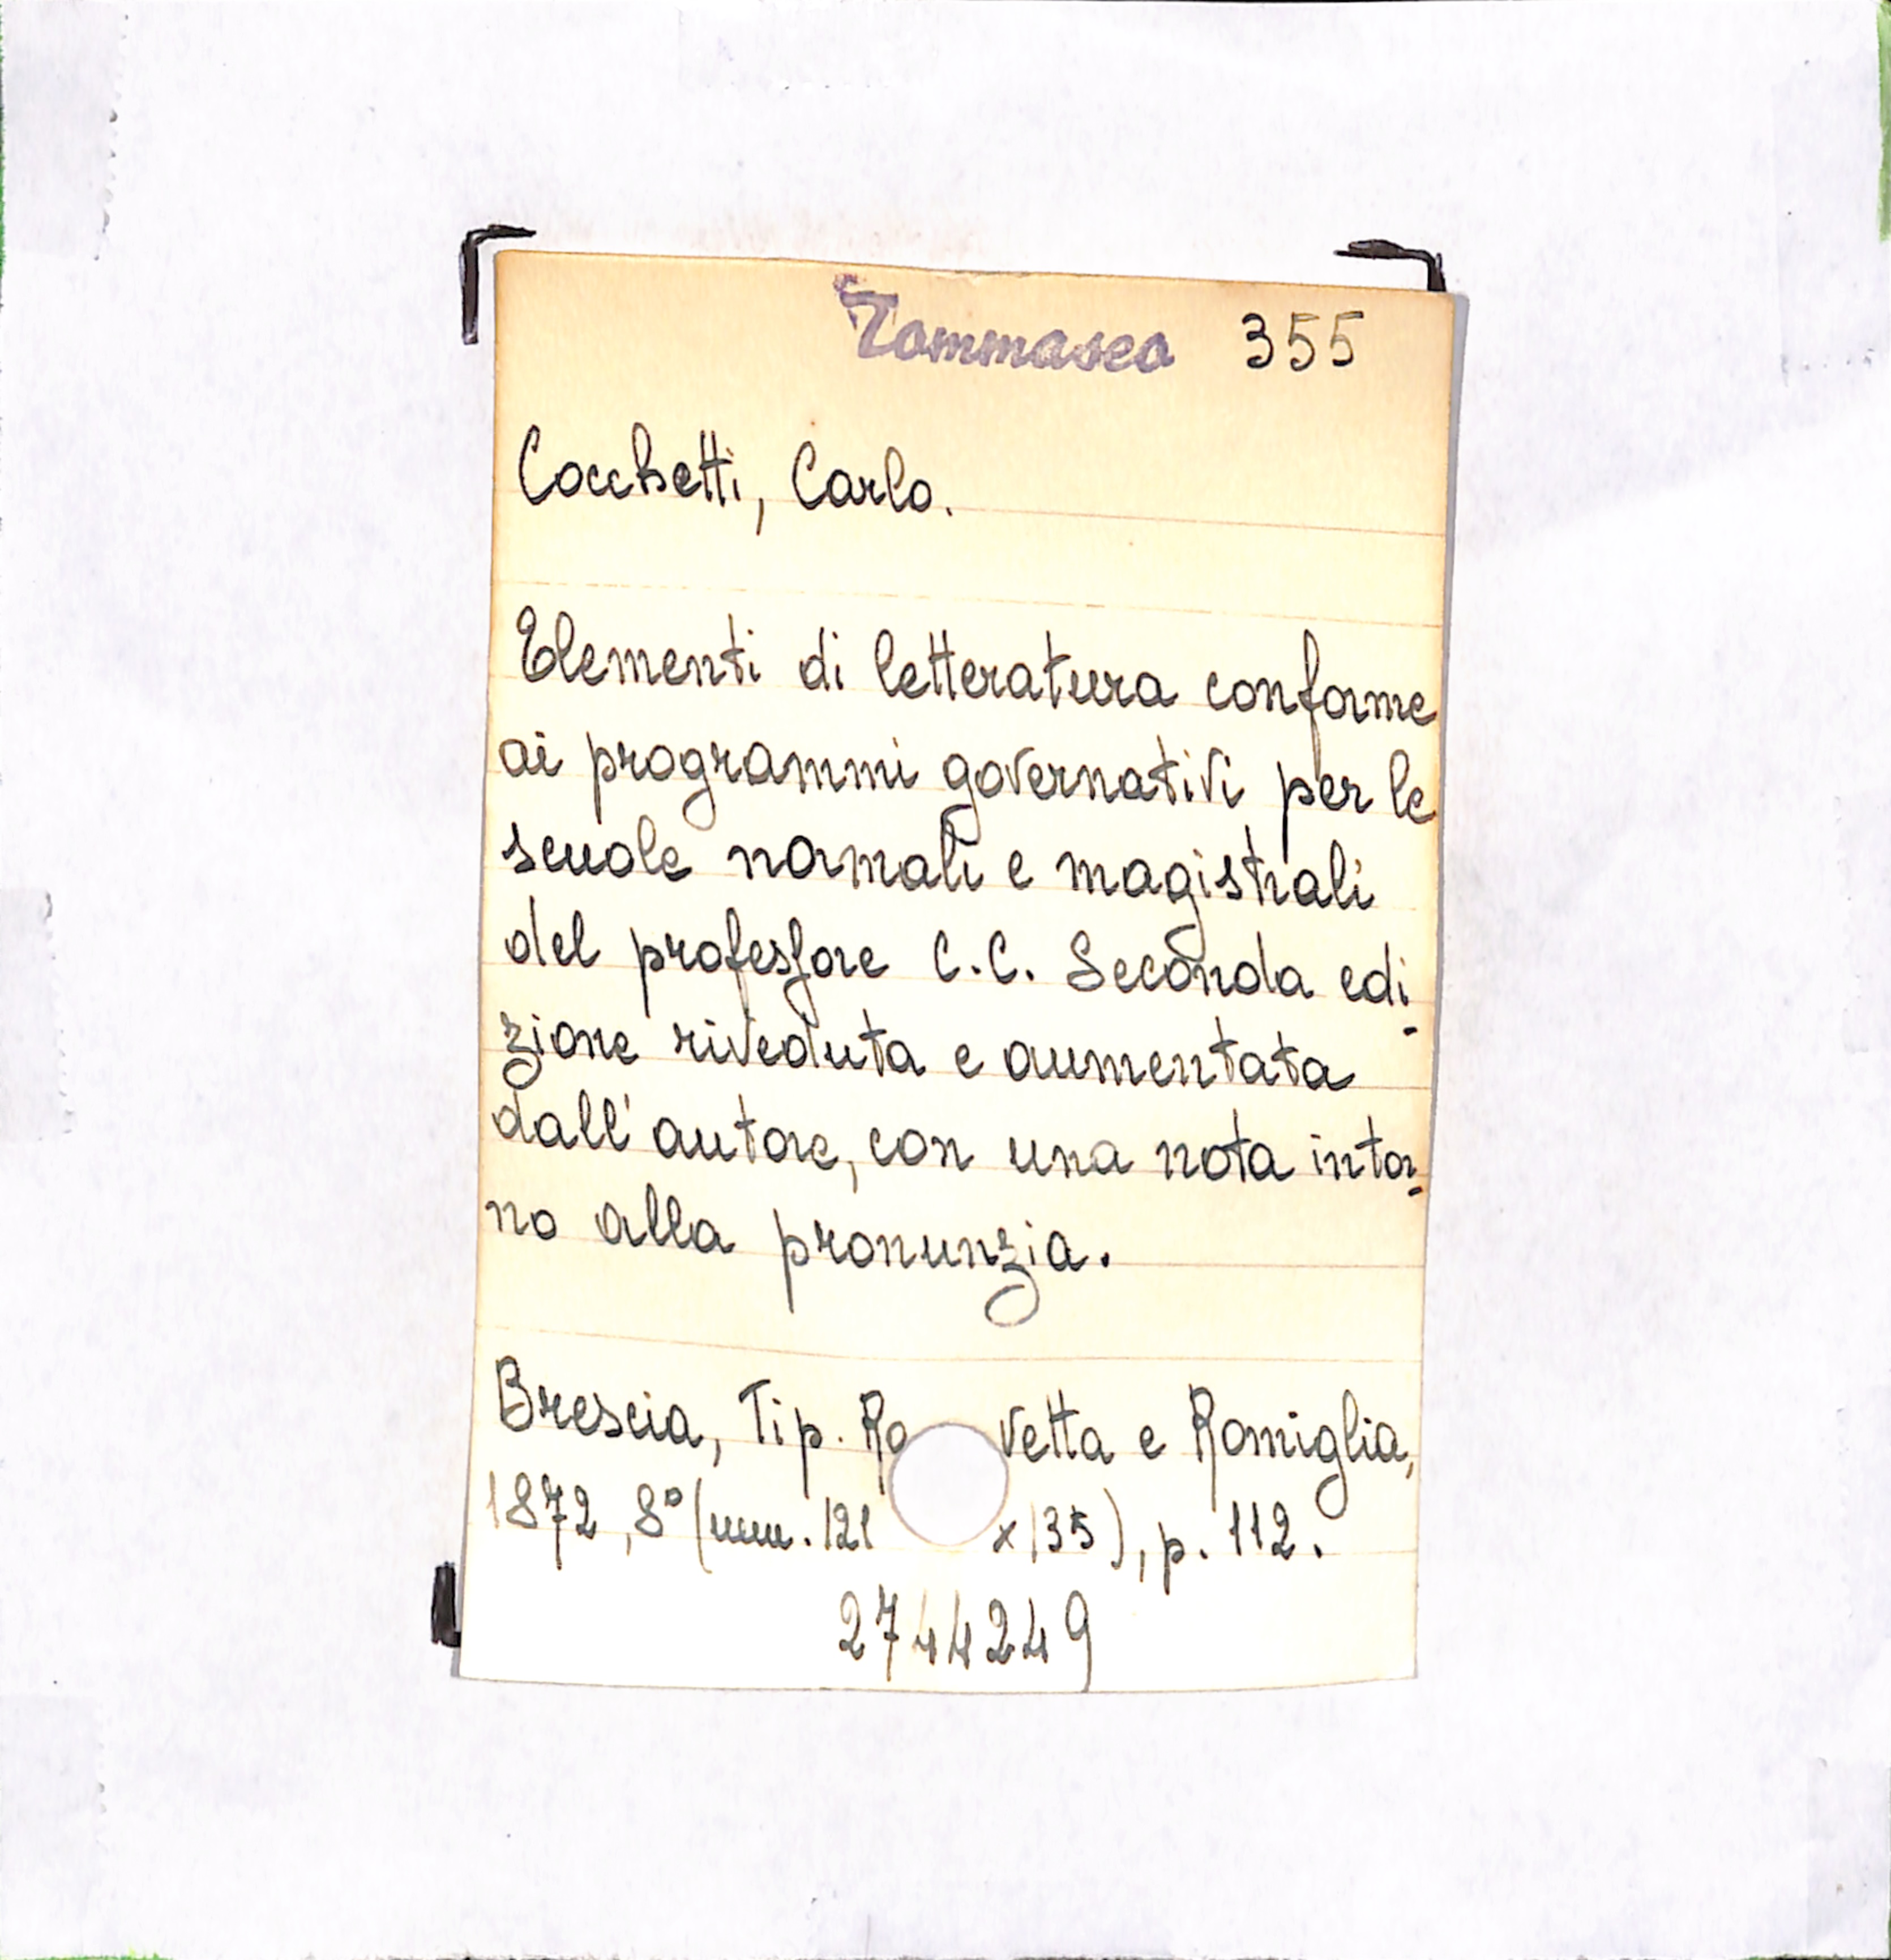 Tommaseo 355
Cocchetti, Carlo.
Elementi di letteratura conforme
ai programmi governativi per le
scuole normali e magistrali
del professore C.C. Seconda edi-
zione riveduta e aumentata
dall'autore, con una nota intor-
no alla pronunzia.
Brescia, Tip. Ro vetta e Romiglia,
1872, 8° (mm. 121 x 135), p. 112.
2744249